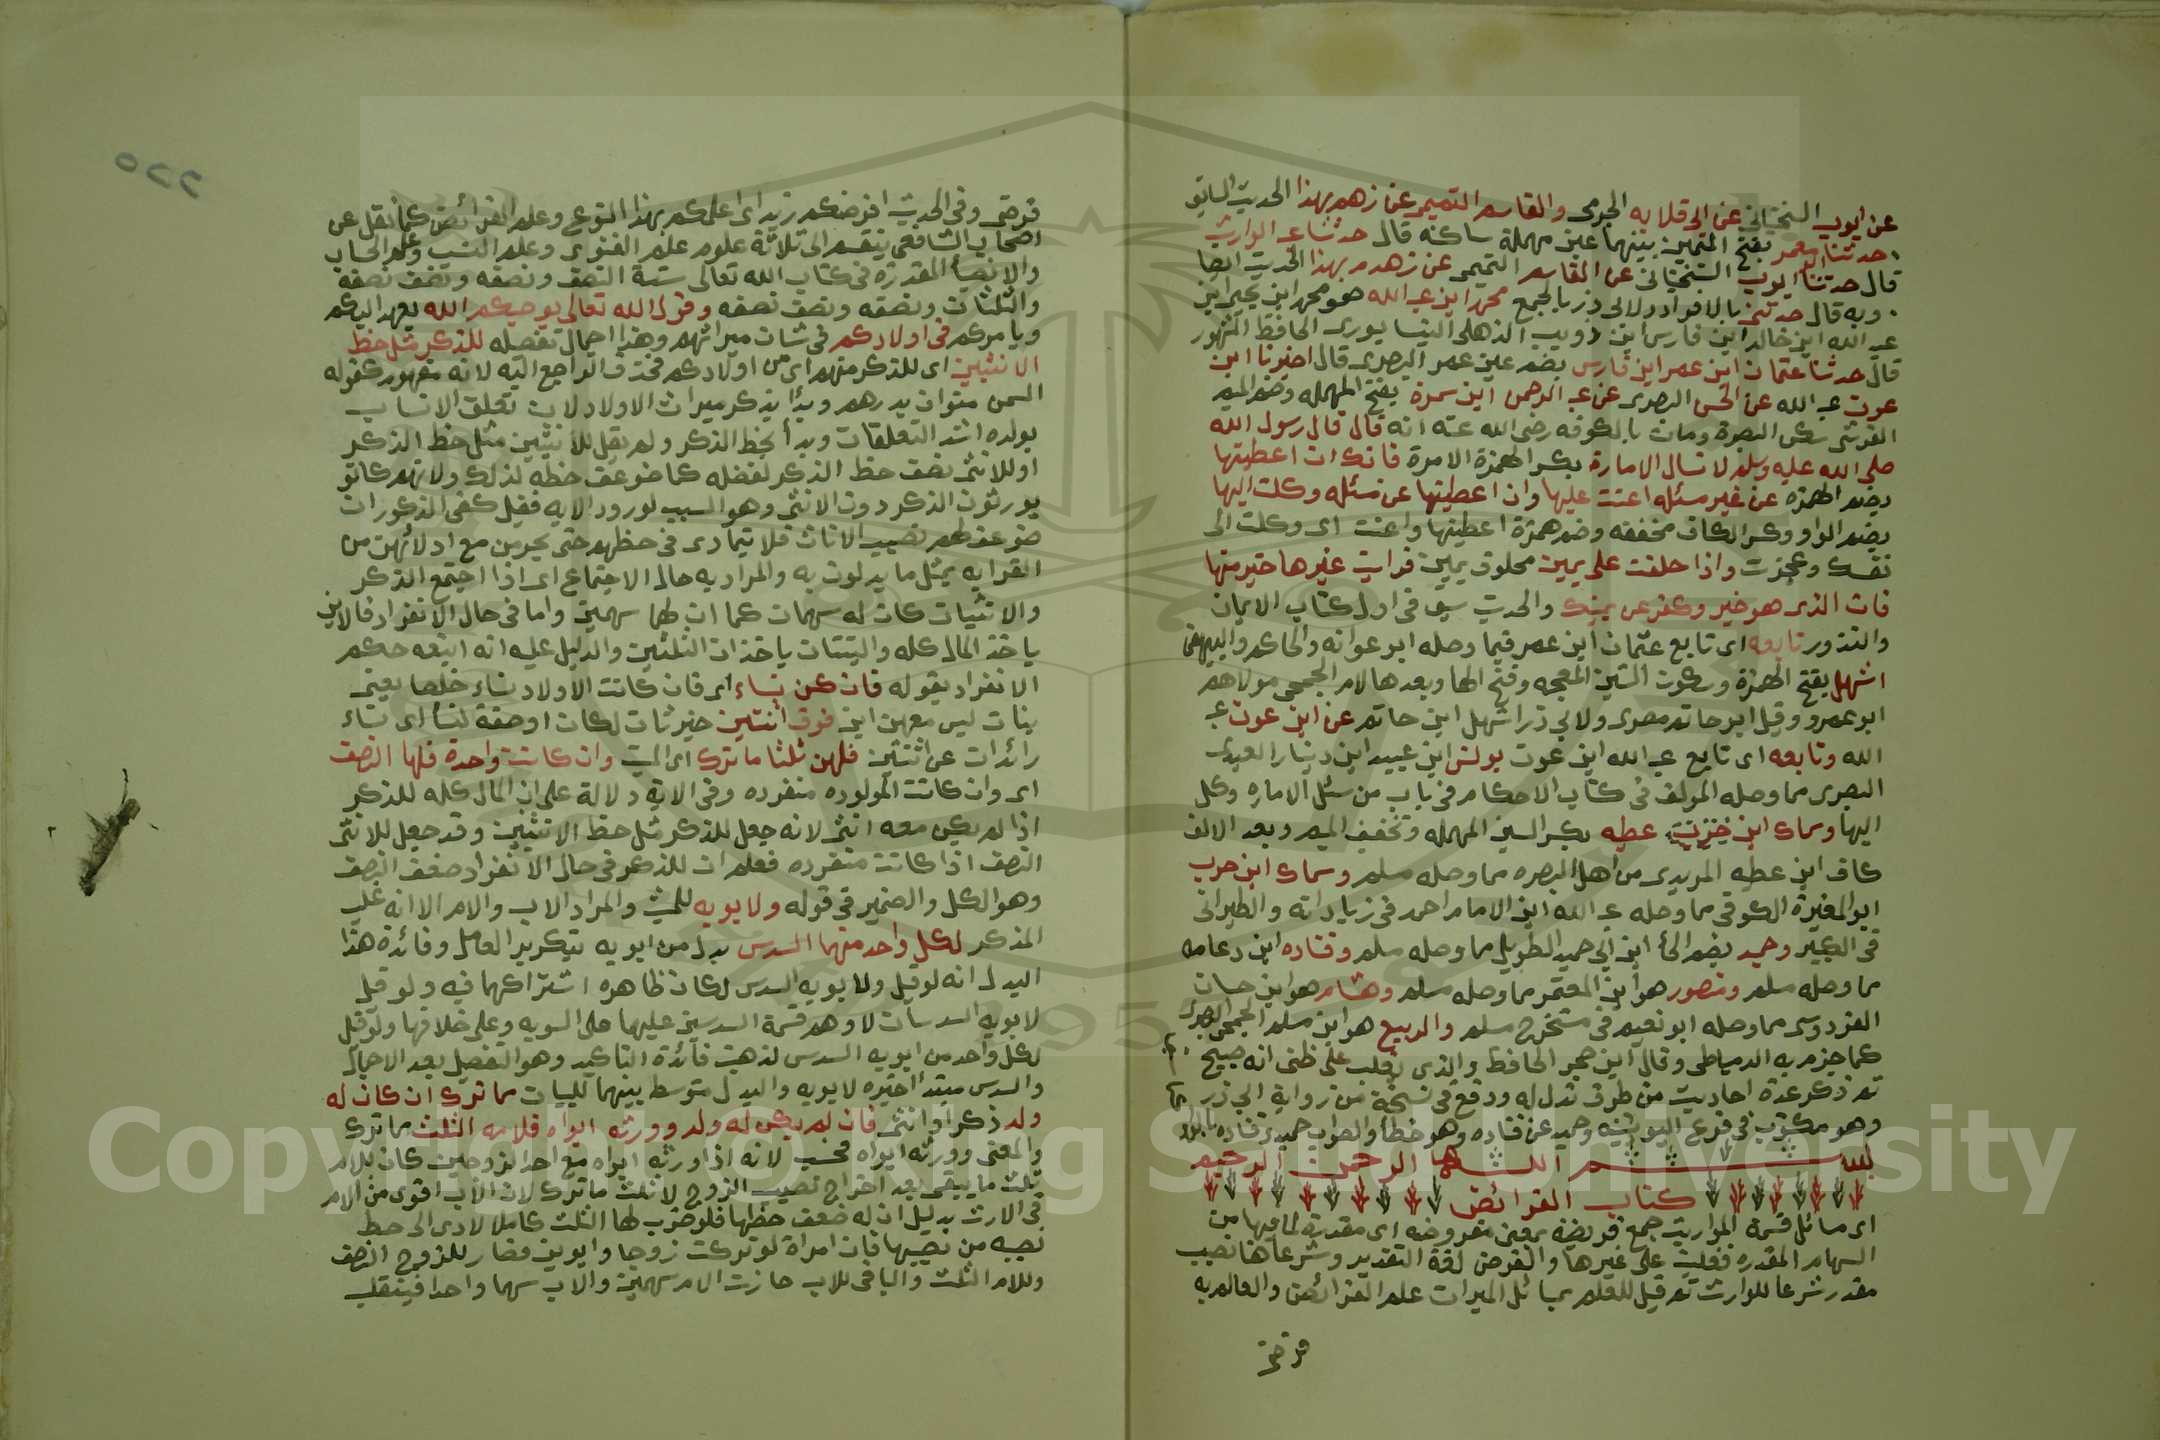 عن ايوب السختياني عن ابي قلابه الجرمي والقاسم التميمي عن زهدم بهذا الحديث السابق
حدثنا ابو معمر بفتح الميمين بينهما عين مهملة ساكنه قال حدثنا عبد الوارث
قال حدثنا ايوب السختياني عن القاسم التميمي عن زهدم بهذا الحديث ايضا
وبه قال حدثني بالافراد ولابي ذر بالجمع محمد ابن عبد الله هو محمد ابن يحيى ابن
عبد الله ابن خالد ابن فارس ابن ذويب الذهلي النيسابوري الحافظ المشهور
قال حدثنا عثمان ابن عمر ابن فارس بضم عين عمر البصري قال اخبرنا ابن
عون عبد الله عن الحسن البصري عن عبد الرحمن ابن سمرة بفتح المهمله وضم الميم
القرشي سكن البصرة ومات بالكوفه رضي الله عنه انه قال قال رسول الله
صلى الله عليه وسلم لا تسال الامارة بكسر الهمزة الامرة فانك ان اعطيتها
بضم الهمزه عن غير مسئله اعنت عليها وان اعطيتها عن مسئله وكلت اليها
بضم الواو وكسر الكاف مخففه وضم همزة اعطيتها واعنت اى وكلت الى
نفسك وعجزت واذا حلفت على يمين محلوف يمين فرايت غيرها خير منها
فات الذى هو خير وكفر عن يمينك والحديث سبق في اول كتاب الايمان
والنذور تابعه اى تابع عثمان ابن عمر فيما وصله ابو عوانه والحاكم والبيهقي
اشهل بفتح الهمزة وسكون الشين المعجمه وفتح الها وبعدها لام الجمحي مولاهم
ابو عمرو وقيل ابو حاتم مصرى ولابي ذر اشهل ابن حاتم عن ابن عون عبد
الله وتابعه اى تابع عبد الله ابن عون يونس ابن عبيد ابن دينار العبدى
البصرى مما وصله المولف في كتاب الاحكام في باب من سئل الاماره وكل
اليها وسماك ابن عطيه بكسر السين المهمله وتخفيف الميم وبعد الالف
كاف ابن عطيه المربدى من اهل البصره مما وصله مسلم وسماك ابن حرب
ابو المغيرة الكوفي مما وصله عبد الله ابن الامام احمد في زياداته والطبراني
في الكبير وحميد بضم الحا ابن ابي حميد الطويل مما وصله مسلم وقتاده ابن دعامه
مما وصله مسلم ومنصور هو ابن المعتمر مما وصله مسلم وهشام هو ابن حسان
الفردوسى مما وصله ابو نعيم في مستخرج مسلم والربيع هو ابن مسلم الجمحي البصرى
كما جزم به الدمياطي وقال ابن حجر الحافظ والذى يغلب على ظني انه صبيح
ثم ذكر عدة احاديث من طرق تدل له ووقع في نسخة من رواية ابي ذر
وهو مكتوب في فرع اليونينيه وحميد عن قتاده وهو خطا والصواب حميد وقتاده بالواو
بسم الله الرحمن الرحيم
كتاب الفرائض
اى مسائل قسمة المواريث جمع فريضة بمعنى مفروضه اى مقدرة لما فيها من
السهام المقدره فغلبت على غيرها والفرض لغة التقدير وشرعا هنا نصيب
مقدر شرعا للوارث ثم قيل للعلم بمسائل الميراث علم الفرائض والعالم به
فرضى
٢٢٥
فرضى وفي الحديث افرضكم زيد اى اعلمكم بهذا النوع وعلم الفرائض كما نقل عن
اصحاب الشافعي ينقسم الى ثلاثة علوم علم الفتوى وعلم النسب وعلم الحساب
والانصبا المقدرة في كتاب الله تعالى ستة النصف ونصفه ونصف نصفه
والثلثان ونصفه ونصف نصفه وقول الله تعالى يوصيكم الله يعهد اليكم
ويامركم في اولادكم في شان ميراثهم وهذا اجمال تفصيله للذكر مثل حظ
الانثيين اى للذكر منهم اى من اولادكم فحذف الراجع اليه لانه مفهوم كقوله
السمن منوان بدرهم وبدا بذكر ميراث الاولاد لان تعلق الانسان
بولده اشد التعلقات وبدا بحظ الذكر ولم يقل للانثيين مثل حظ الذكر
او للانثى نصف حظ الذكر لفضله كما ضوعف حظه لذلك ولانهم كانو
يورثون الذكر دون الانثى وهو السبب لورود الايه فقيل كفى الذكور ان
ضوعف لهم نصيب الاناث فلا يتمادى في حظهم حتى يحرمن مع ادلائهن من
القرابه بمثل ما يدلون به والمراد به حال الاجتماع اى اذا اجتمع الذكر
والانثيان كان له سهمان كما ان لهما سهمين واما في حال الانفراد فالابن
ياخذ المال كله والبنتان ياخذان الثلثين والدليل عليه انه اتبعه حكم
الانفراد بقوله فان كن نساء اى فان كانت الاولاد نساء خلصا يعنى
بنات ليس معهن ابن فوق اثنتين خبر ثان لكان او صفة لنسا اى نساء
زائدات عن اثنتين فلهن ثلثا ما ترك اى الميت وان كانت واحدة فلها النصف
اى وان كانت المولوده منفرده وفي الاية دلالة على ان المال كله للذكر
اذا لم يكن معه انثى لانه جعل للذكر مثل حظ الانثيين وقد جعل للانثى
النصف اذا كانت منفرده فعلم ان للذكر في حال الانفراد ضعف النصف
وهو الكل والضمير في قوله ولابويه للميت والمراد الاب والام الا انه غلب
المذكر لكل واحد منهما السدس بدل من ابويه بتكرير العامل وفائدة هذا
البدل انه لو قيل ولابويه السدس لكان ظاهره اشتراكهما فيه ولو قيل
لابويه السدسان لاوهم قسمة السدسين عليهما على السويه وعلى خلافها ولو قيل
لكل واحد من ابويه السدس لذهبت فائدة التاكيد وهو التفصيل بعد الاجمال
والسدس مبتدا خبره لابويه والبدل متوسط بينهما للبيان مما ترك ان كان له
ولد ذكر او انثى فان لم يكن له ولد وورثه ابواه فلامه الثلث مما ترك
والمعنى وورثه ابواه فحسب لانه اذا ورثه ابواه مع احد الزوجين كان للام
ثلث ما يبقى بعد اخراج نصيب الزوج لا ثلث ما ترك لان الاب اقوى من الام
في الارث بدليل ان له ضعف حظها فلو ضرب لها الثلث كاملا لادى الى حط
نصيبه من نصيبها فان امراة لو تركت زوجا وابوين فصار للزوج النصف
وللام الثلث والباقي للاب حازت الام سهمين والاب سهما واحدا فينقلب
Copyright © King Saud University